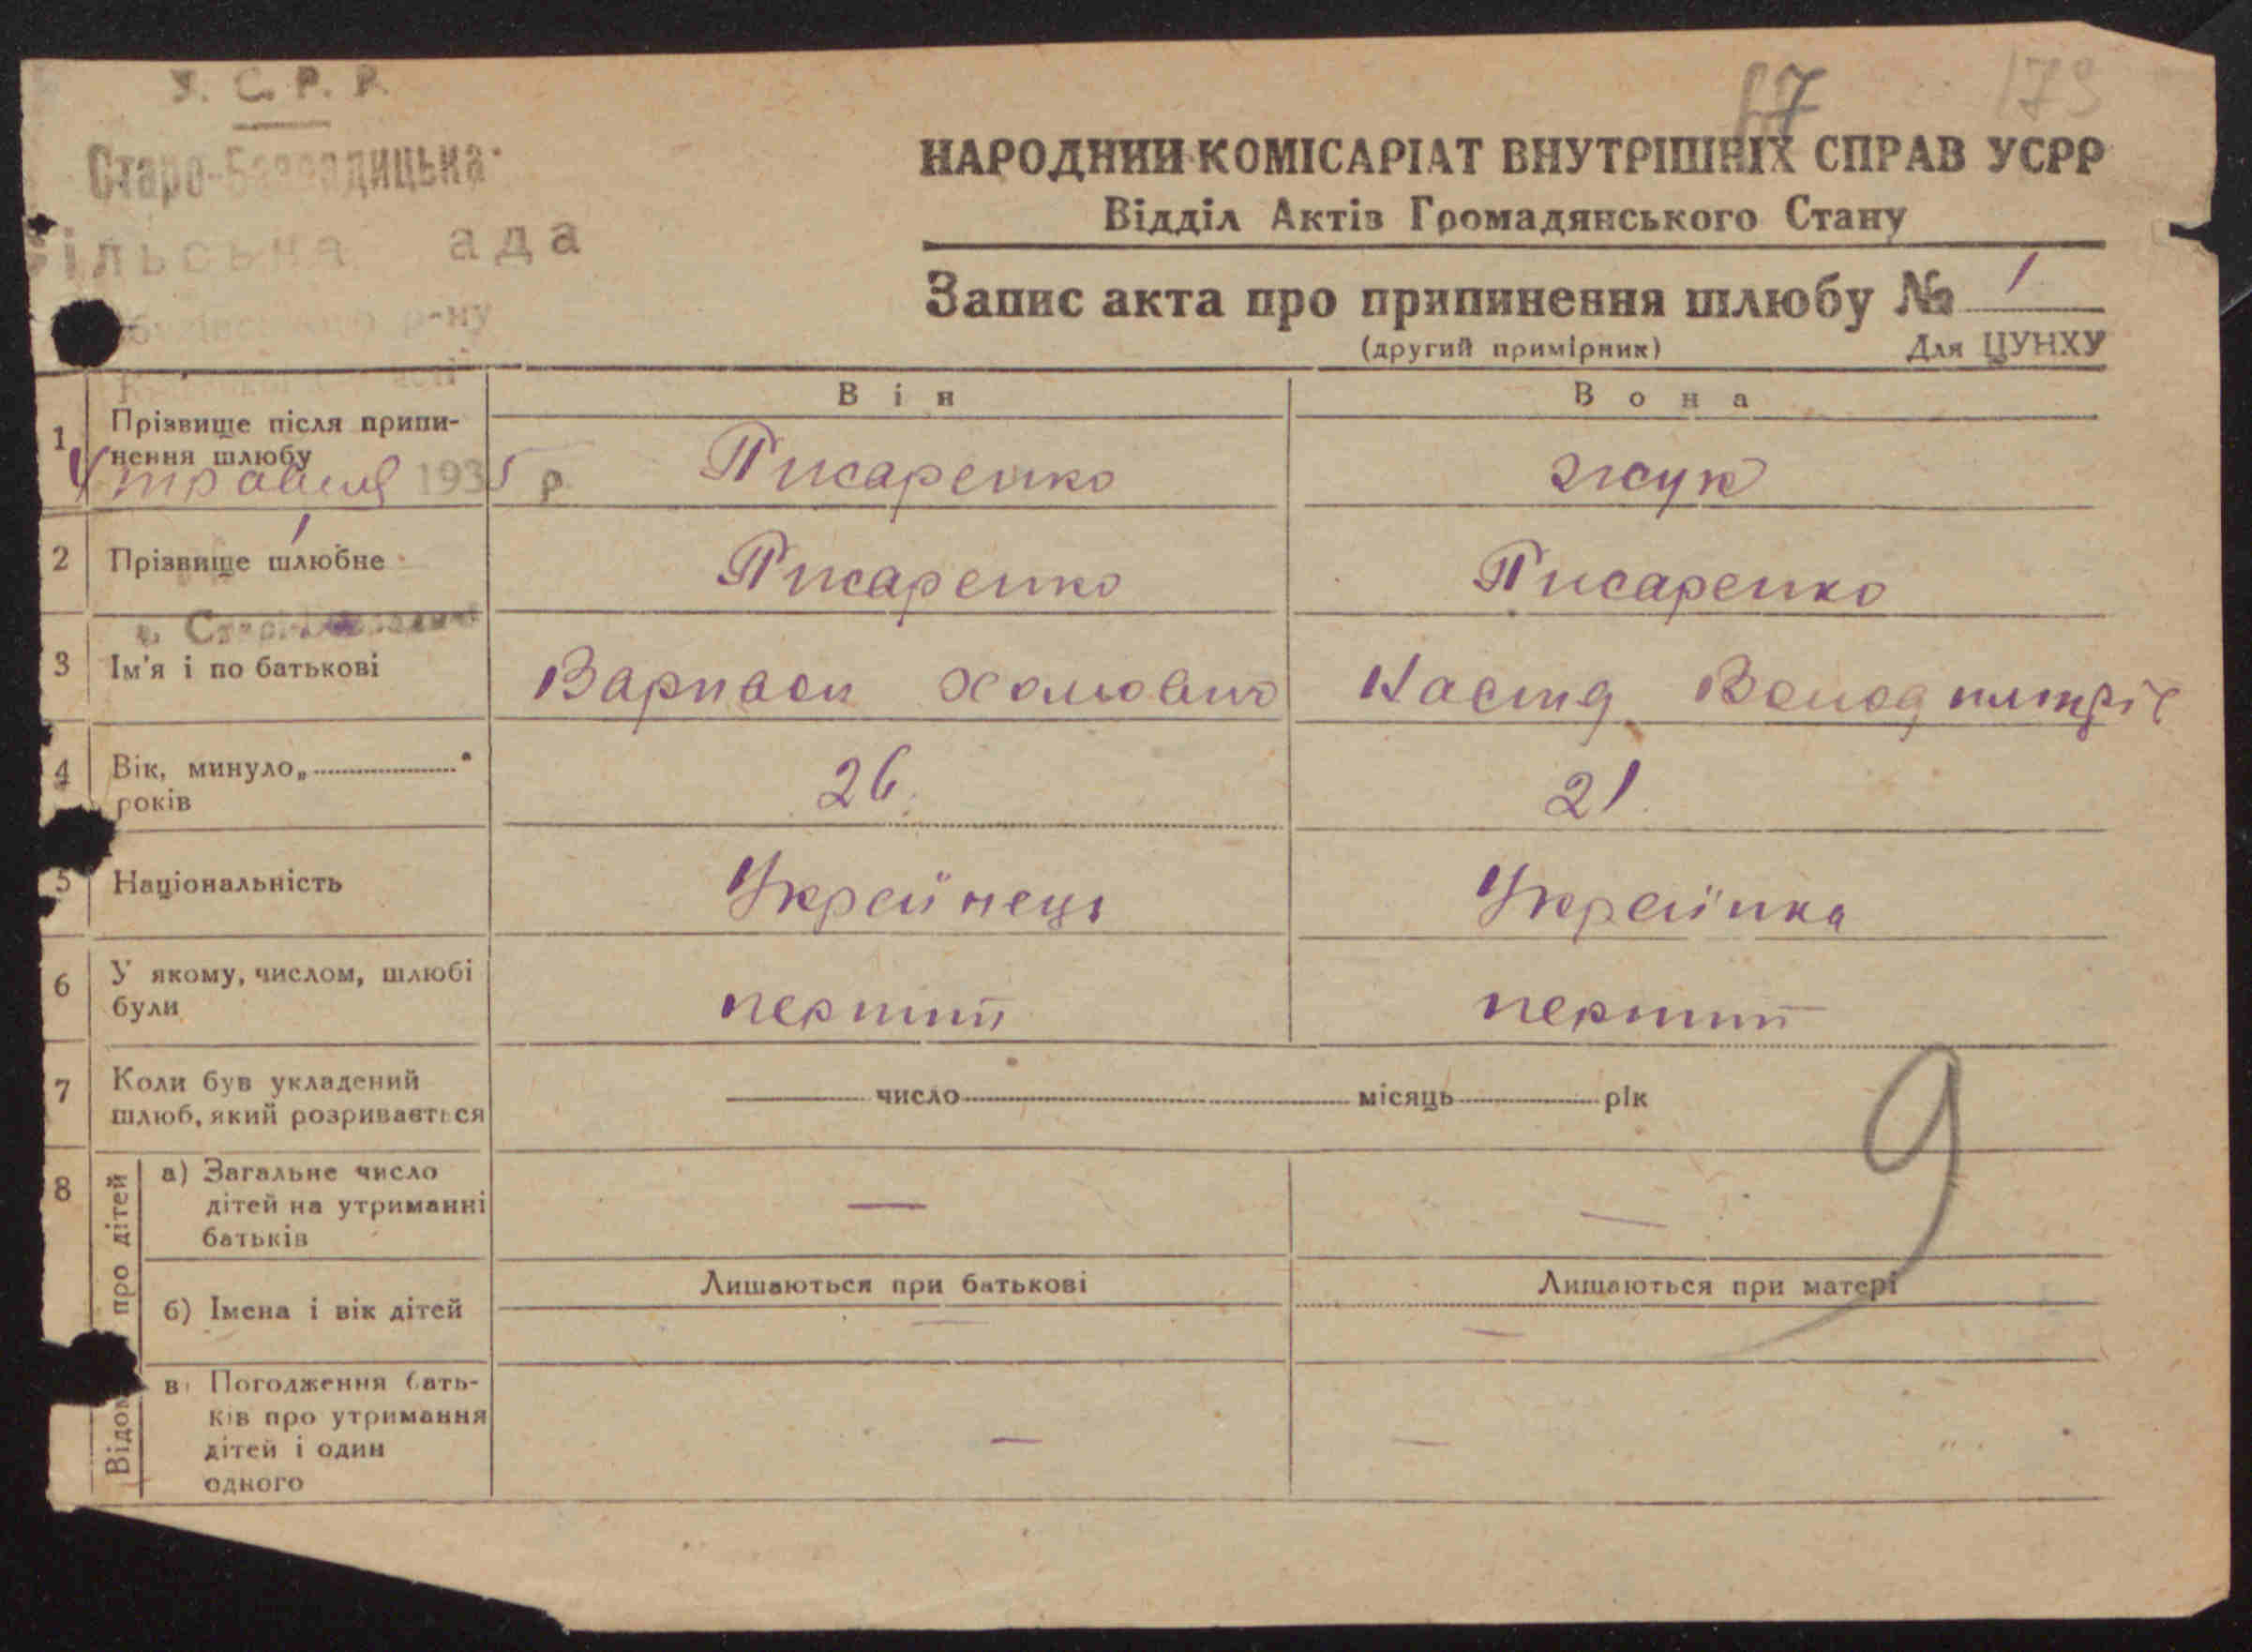 У. С. Р. Р.
ада
р-ну
17 179
НАРОДНИЙ КОМІСАРІАТ ВНУТРІШНІХ СПРАВ УСРР
Відділ Актів Громадянського Стану
Запис акта про припинення шлюбу № 1
(другий примірник) Для ЦУНХУ
Він Вона
1 Прізвище після припи-
нення шлюбу Писаренко Жук
травня 1935 р.
2 Прізвище шлюбне Писаренко Писаренко
1
3 Ім'я і по батькові Настя
4 Вік, минуло „ “
років 26 21
5 Національність Українець Українка
6 У якому, числом, шлюбі
були перший перший
7 Коли був укладений
шлюб, який розривається число місяць рік
9
8 про дітей
а) Загальне число
дітей на утриманні
батьків — —
Лишаються при батькові Лишаються при матері
б) Імена і вік дітей — —
в) Погодження бать-
ків про утримання
дітей і один
одного — —